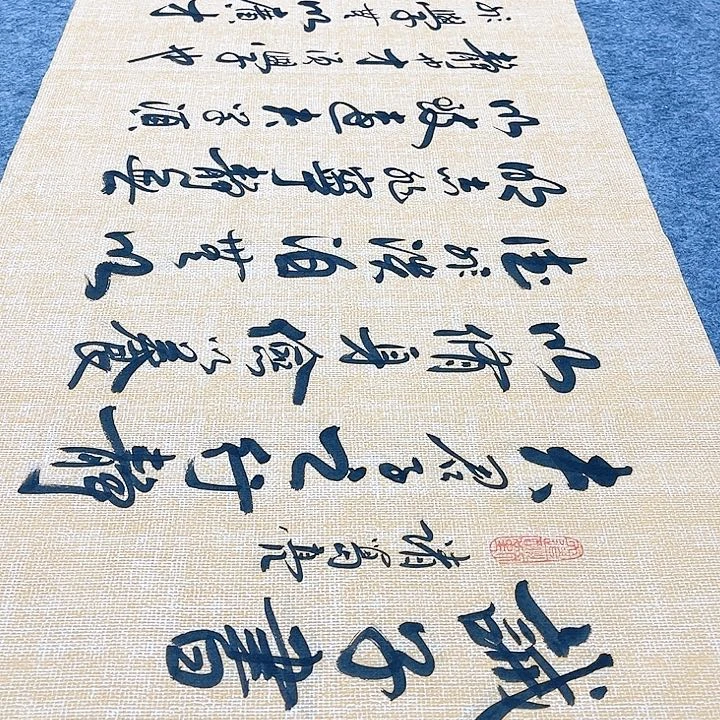 誡子書
諸葛亮
夫君子之行靜
以修身儉以養
德非淡泊無以
明志非寧靜無
以致遠夫學須
靜也才須學也
非學無以廣才